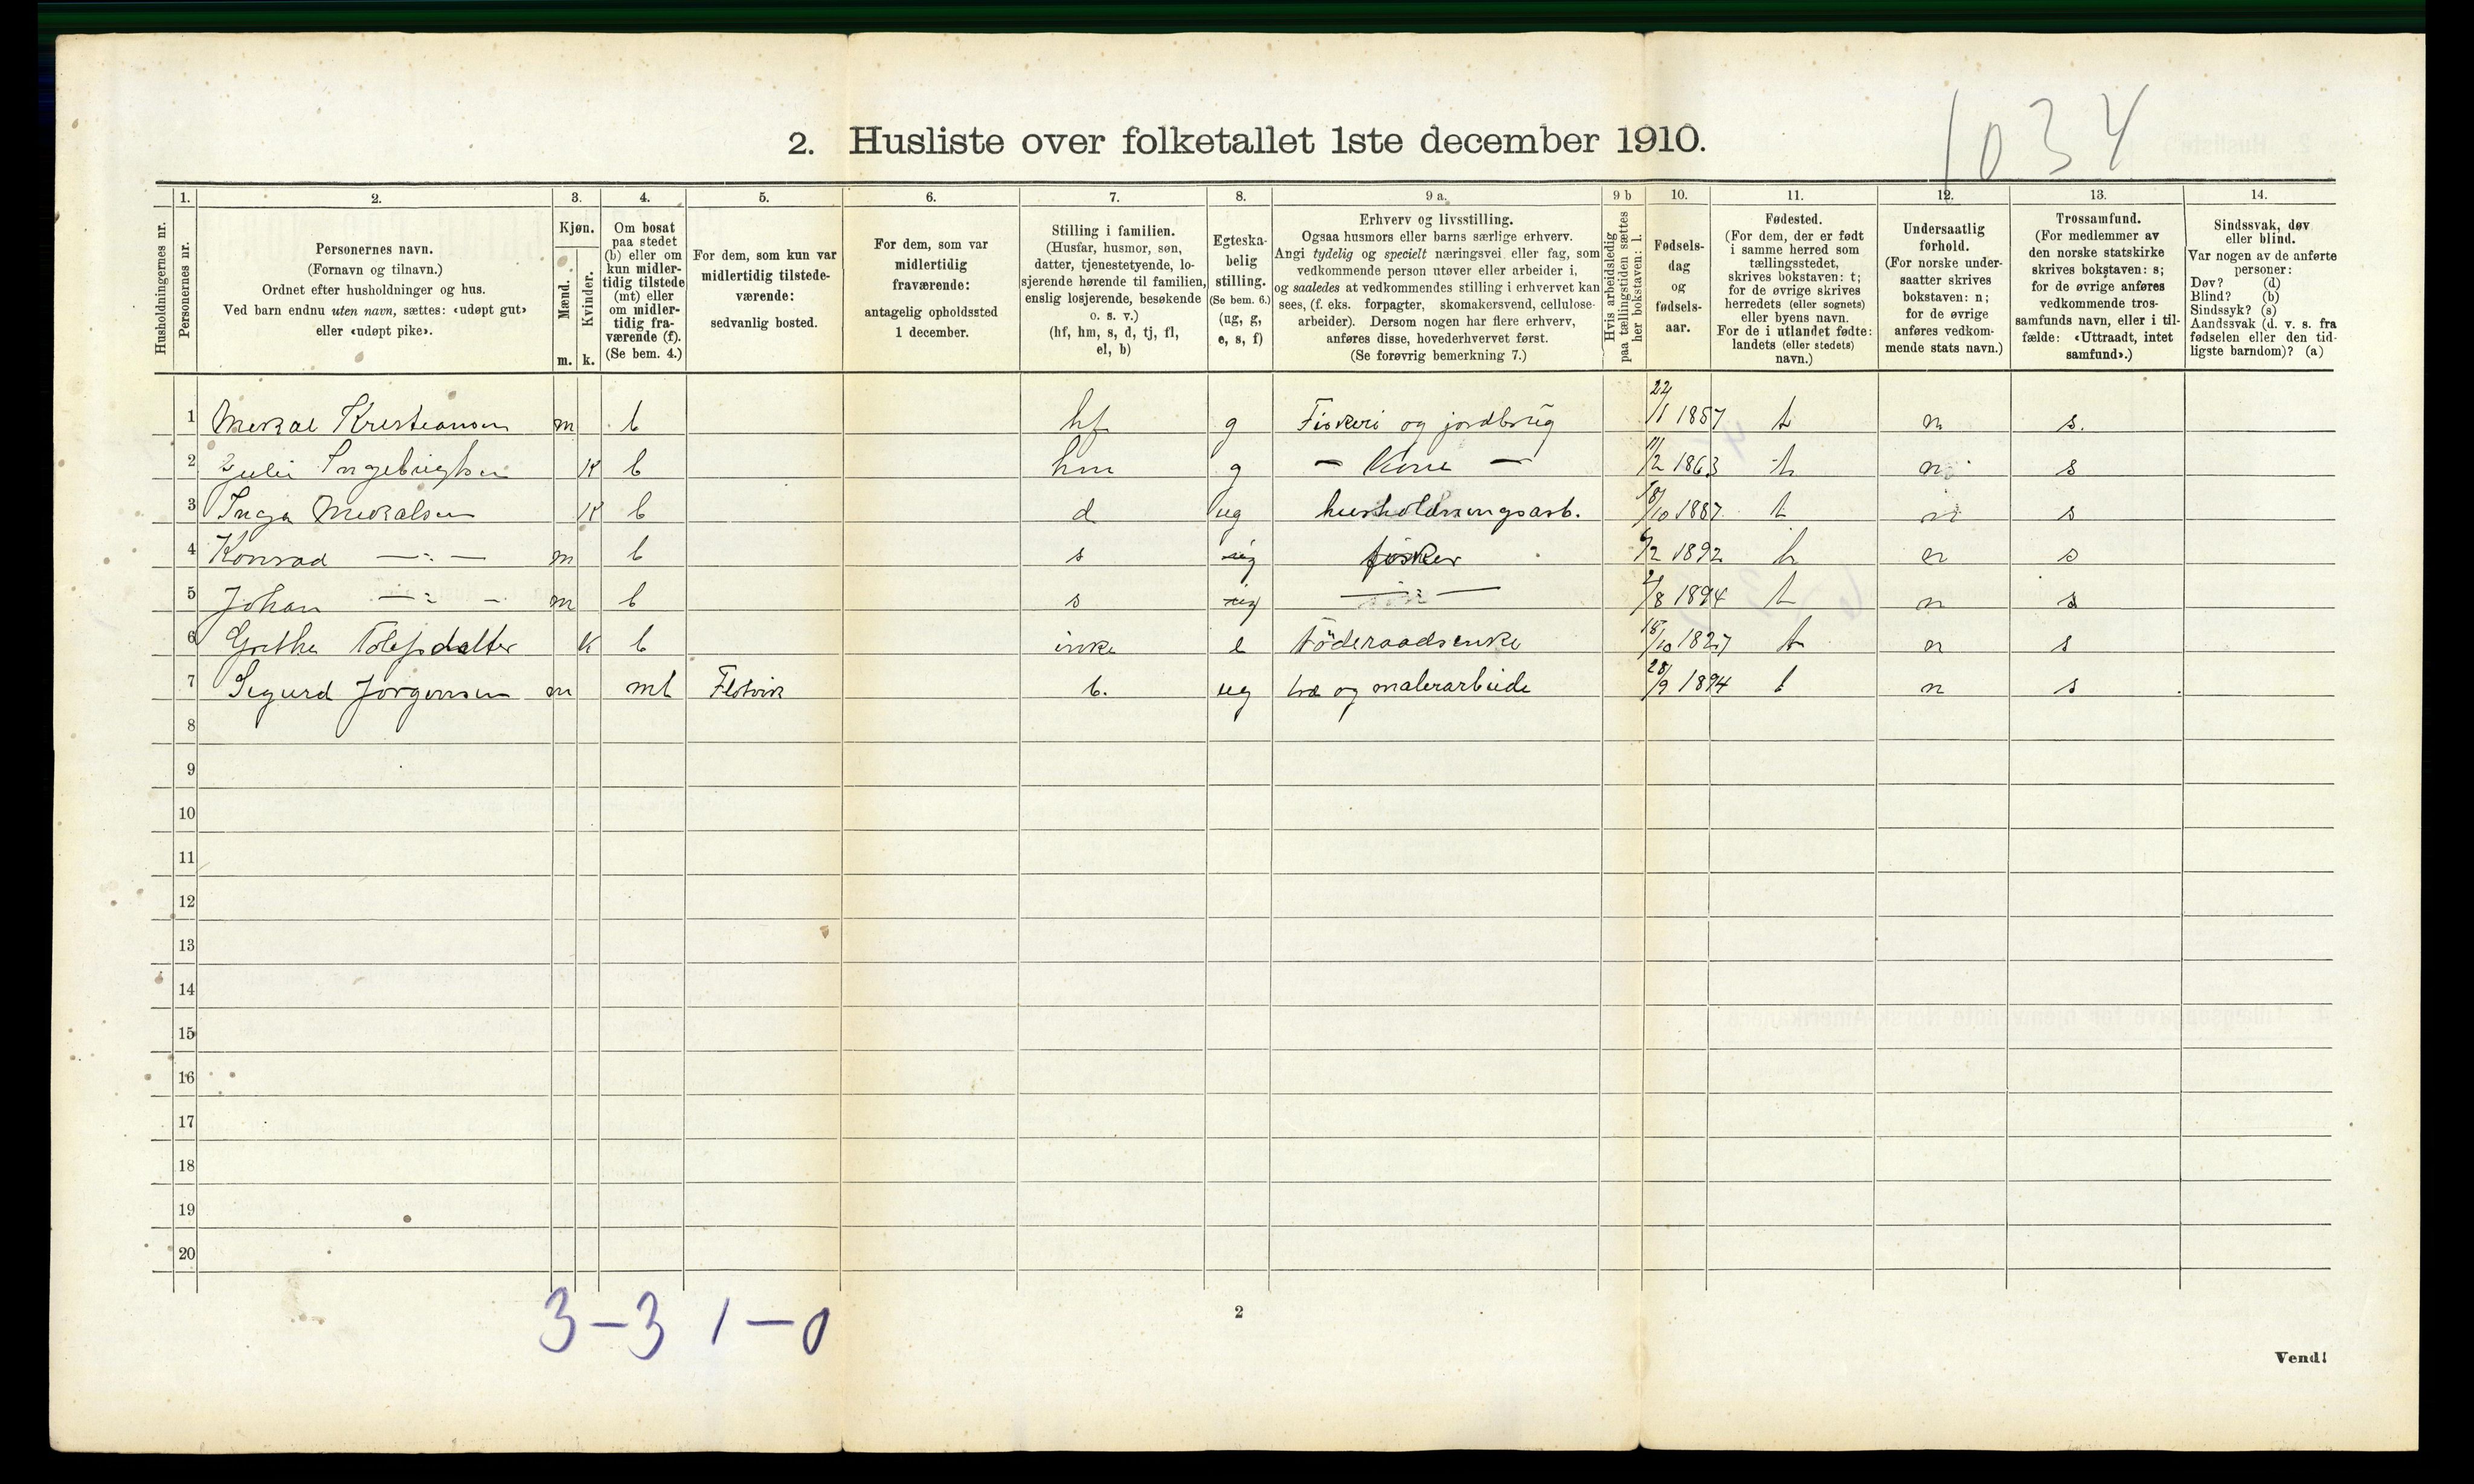 1034
2. Husliste over folketallet 1ste december 1910.
Husholdningernes nr.
1. Personernes nr.
2. Personernes navn.
(Fornavn og tilnavn.)
Ordnet efter husholdninger og hus.
Ved barn endnu uten navn, sættes: «udøpt gut»
eller «udøpt pike».
3. Kjøn.
Mænd. m.
Kvinder. k.
4. Om bosat
paa stedet
(b) eller om
kun midler-
tidig tilstede
(mt) eller
om midler-
tidig fra-
værende (f).
(Se bem. 4.)
5. For dem, som kun var
midlertidig tilstede-
værende:
sedvanlig bosted.
6. For dem, som var
midlertidig
fraværende:
antagelig opholdssted
1 december.
7. Stilling i familien.
(Husfar, husmor, søn,
datter, tjenestetyende, lo-
sjerende hørende til familien,
enslig losjerende, besøkende
o. s. v.)
(hf, hm, s, d, tj, fl,
el, b)
8. Egteska-
belig
stilling.
(Se bem. 6.)
(ug, g,
e, s, f)
9 a. Erhverv og livsstilling.
Ogsaa husmors eller barns særlige erhverv.
Angi tydelig og specielt næringsvei eller fag, som
vedkommende person utøver eller arbeider i,
og saaledes at vedkommendes stilling i erhvervet kan
sees, (f. eks. forpagter, skomakersvend, cellulose-
arbeider). Dersom nogen har flere erhverv,
anføres disse, hovederhvervet først.
(Se forøvrig bemerkning 7.)
9 b Hvis arbeidsledig
paa tællingstiden sættes
her bokstaven: l.
10. Fødsels-
dag
og
fødsels-
aar.
11. Fødested.
(For dem, der er født
i samme herred som
tællingsstedet,
skrives bokstaven: t;
for de øvrige skrives
herredets (eller sognets)
eller byens navn.
For de i utlandet fødte:
landets (eller stedets)
navn.)
12. Undersaatlig
forhold.
(For norske under-
saatter skrives
bokstaven: n;
for de øvrige
anføres vedkom-
mende stats navn.)
13. Trossamfund.
(For medlemmer av
den norske statskirke
skrives bokstaven: s;
for de øvrige anføres
vedkommende tros-
samfunds navn, eller i til-
fælde: «Uttraadt, intet
samfund».)
14. Sindssvak, døv
eller blind.
Var nogen av de anførte
personer:
Døv? (d)
Blind? (b)
Sindssyk? (s)
Aandssvak (d. v. s. fra
fødselen eller den tid-
ligste barndom)? (a)
1 Mekal Kristiansen m b hf g Fiskeri og jordbrug 22/11 1857 t n s.
2 Julie Ingebrigtsen K b hm g - Kone - 11/2 1863 t n s
3 Inga Mekalsen K b d ug husholdningsarb. 18/10 1887 t n s
4 Konrad —:— m b s ug fisker 6/2 1892 t n s
5 Johan —:— m b s ug —:— /8 1894 t n s
6 Grethe Tolefsdatter K b enke e föderaadsenke 18/10 1827 t n s
7 Sigurd Jørgensen m mt Flotvik b. ug træ og malerarbeide 28/9 1894 t n s
8
9
10
11
12
13
14
15
16
17
18
19
20
3-3 1-0
2
Vend!